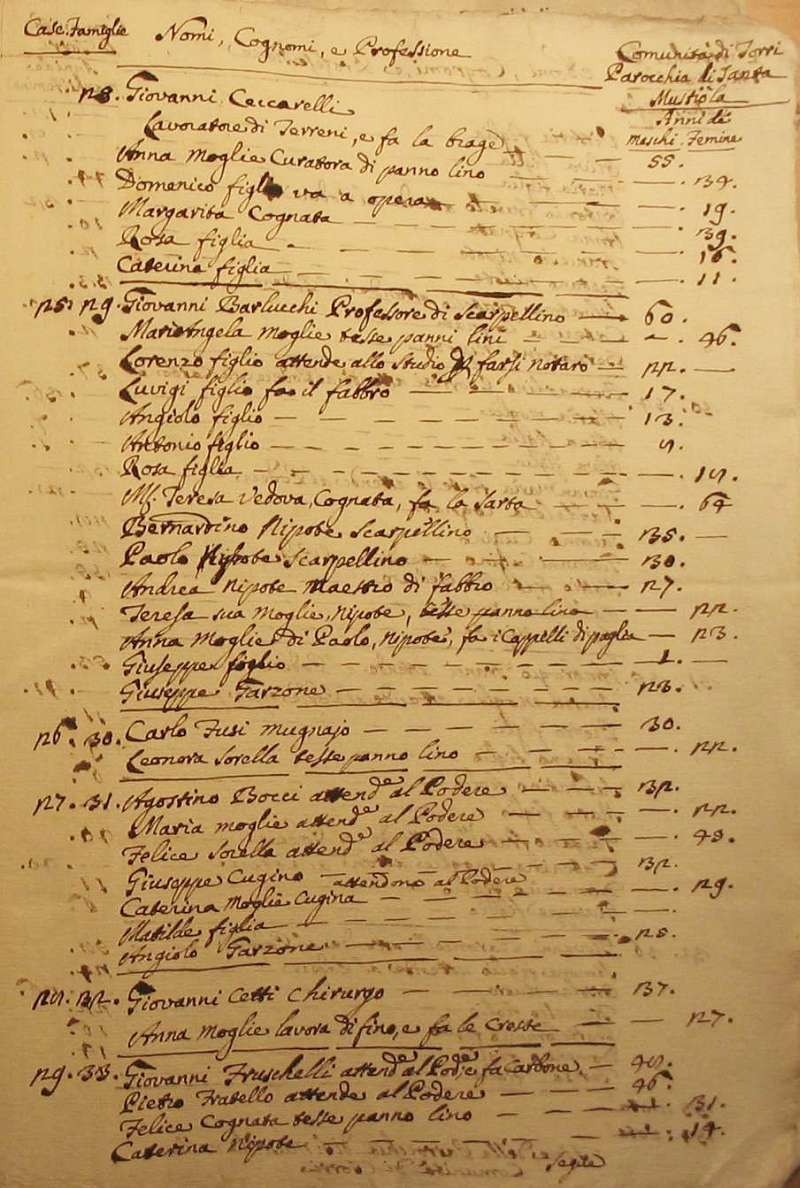 Case. Famiglie Nomi, Cognomi, e Professione
Comunità di Torri
Parocchia di Santa
Mustiola
Anni di
Maschi. Femine
28. Giovanni Ceccarelli
Lavoratore di Terreni, e fa la brage 55.
Anna Moglie Curatora di panno lino 34.
Domenico figlio va a opera 19.
Margarita Cognata 39.
Rosa figlia 16.
Caterina figlia 11.
25. 29. Giovanni Barlucchi Professore di Scarpellino 60.
Mariangela moglie tesse panni lini 46.
Lorenzo figlio attende allo studio farsi notaro 22.
Luvigi figlio fa il fabbro 17.
Angiolo figlio 13.
Antonio figlio
Rosa figlia
Teresa Vedova, Cognata, fa la sarta 64
Bernardino Nipote Scarpellino 35.
Paolo Nipote Scarpellino 30.
Andrea Nipote Maestro di fabbro 27.
Teresa sua Moglie, Nipote, tesse panno lino 22.
Anna Moglie di Paolo, Nipote, fa i Cappelli di paglia 23.
Giuseppe figlio 1.
Giuseppe Garzone 23.
26. 30. Carlo Fusi mugnajo 30.
Leonora Sorella tesse panno lino 22.
27. 31. Agostino Bocci attend.e al Podere 32.
Maria moglie attend.e al Podere 22.
Felice Sorella attend.e al Podere 43.
Giuseppe Cugino attendono al Podere 32.
Caterina Moglie Cugina 29.
Matilde figlia
Angiolo Garzone 25.
28. 32. Giovanni Cetti Chirurgo 37.
Anna Moglie lavora di fino, e fa le Creste 27.
29. 33. Giovanni Fruschelli attend.e al Pod.e, e fa Carbone 48.
Pietro Fratello attende al Podere 46.
Felice Cognata tesse panno lino 31.
Caterina Nipote 14.
Segue